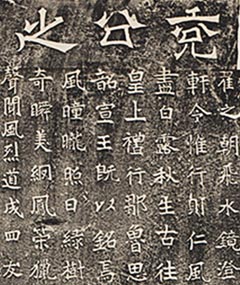 兗公之
雀之朝飛水鏡澄
軒令惟行仁風
盡白露秋生古往
皇上禮行魯思
詔宣王既以銘焉
風曈曨照日緑樹
奇瞬美鳳獵
聲聞風烈道成四友